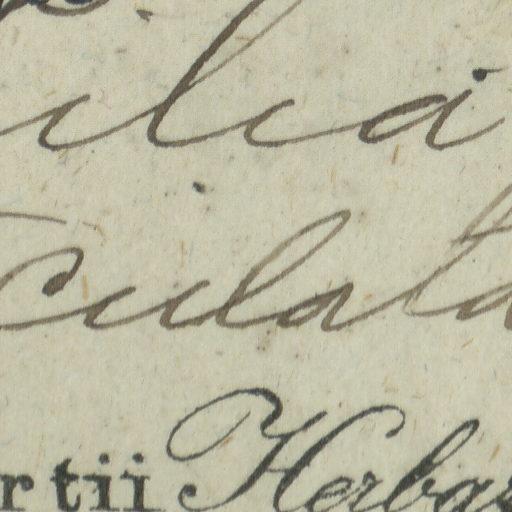 ilia
culata
rtii Herbar